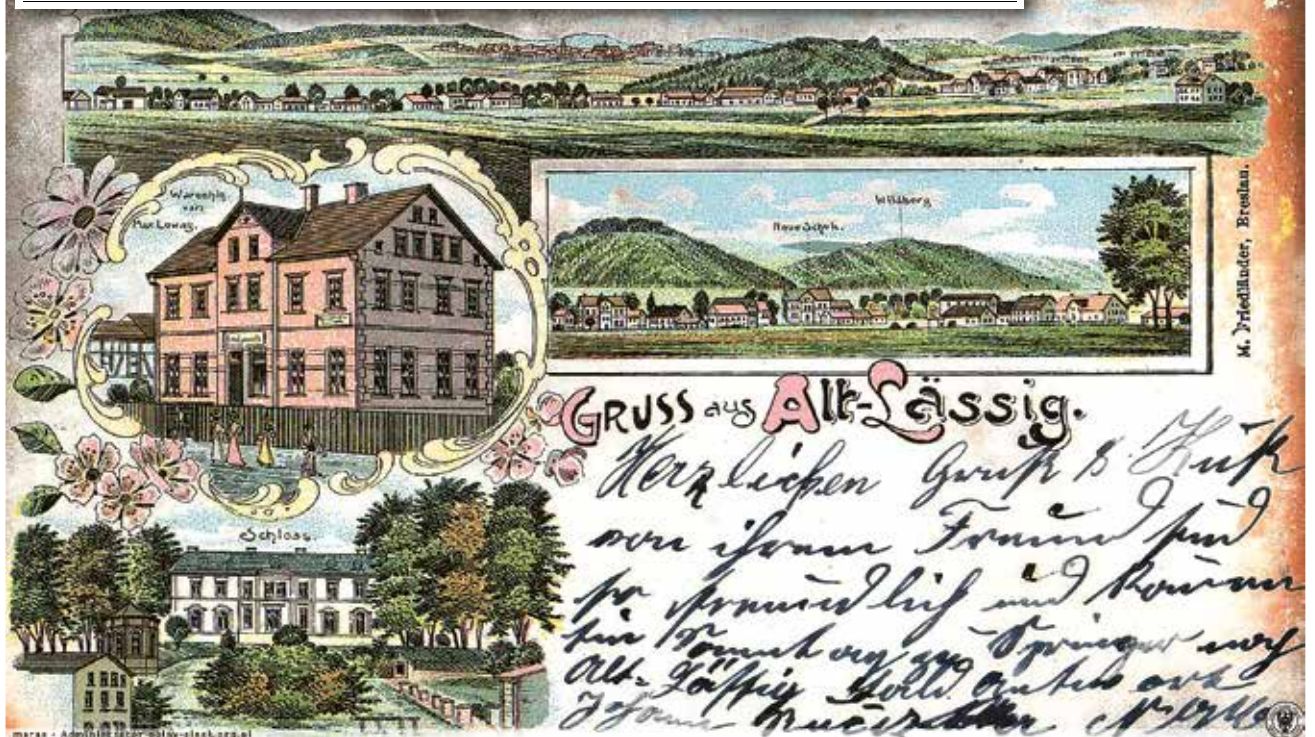 Warenhs.
von
Max Lowag.
Neue Schule.
Wildberg
M. Friedländer, Breslau.
GRUSS aus Alt-Lässig.
Herzlichen Gruß & Kuß
von ihrem Freund sind
so freundlich und kommen
Sonntag zu Springer nach
Alt-Lässig bald antwort
Schloss.